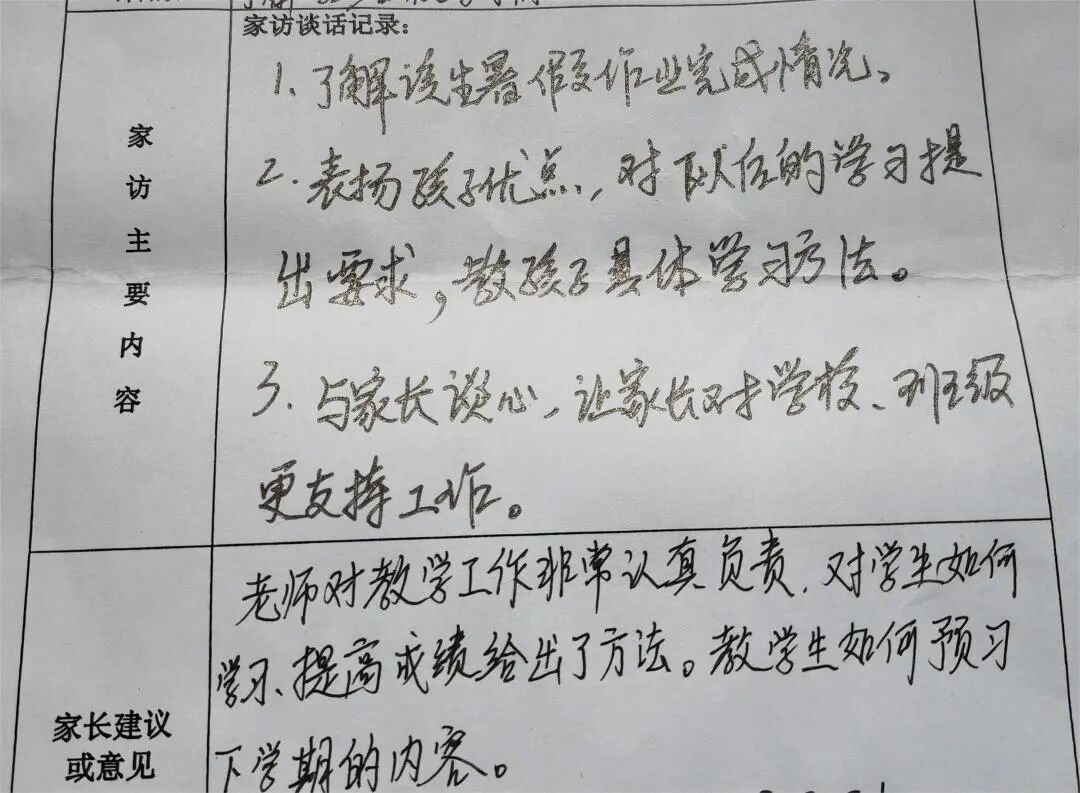 家访谈话记录：
家访主要内容
1. 了解该生暑假作业完成情况。
2. 表扬孩子优点，对以后的学习提
出要求，教孩子具体学习方法。
3. 与家长谈心，让家长对学校、班级
更支持工作。
家长建议
或意见
老师对教学工作非常认真负责，对学生如何
学习、提高成绩给出了方法。教学生如何预习
下学期的内容。